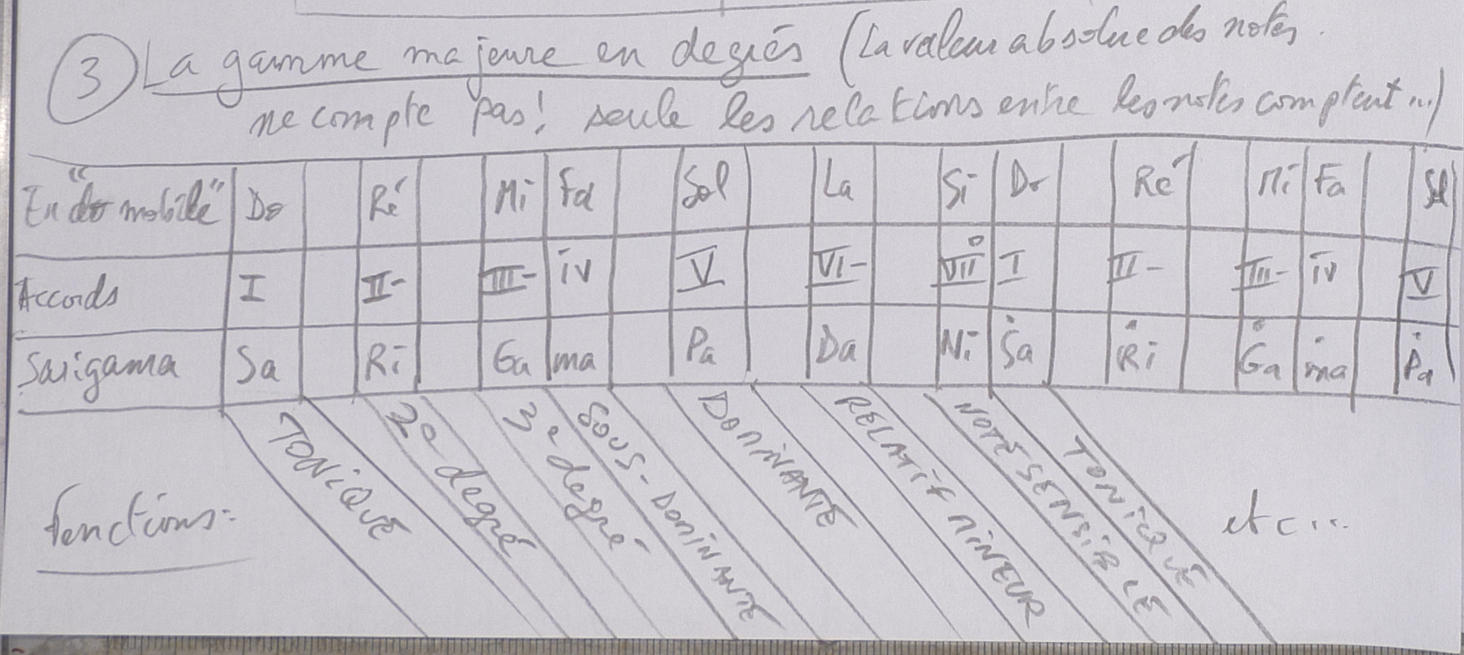 3 La gamme majeure en degrés (La valeur absolue des notes
ne compte pas! seule les relations entre les notes comptent...)
En "do mobile" Do Ré Mi Fa Sol La Si Do Ré Mi Fa Sol
Accords I II- III- IV V VI- VII° I II- III- IV V
Sarigama Sa Ri Ga ma Pa Da Ni Ṡa Ṙi Ġa ṁa Ṗa
fonctions: TONIQUE 2º degré 3º degré SOUS-DOMINANTE DOMINANTE RELATIF MINEUR NOTE SENSIBLE TONIQUE etc...